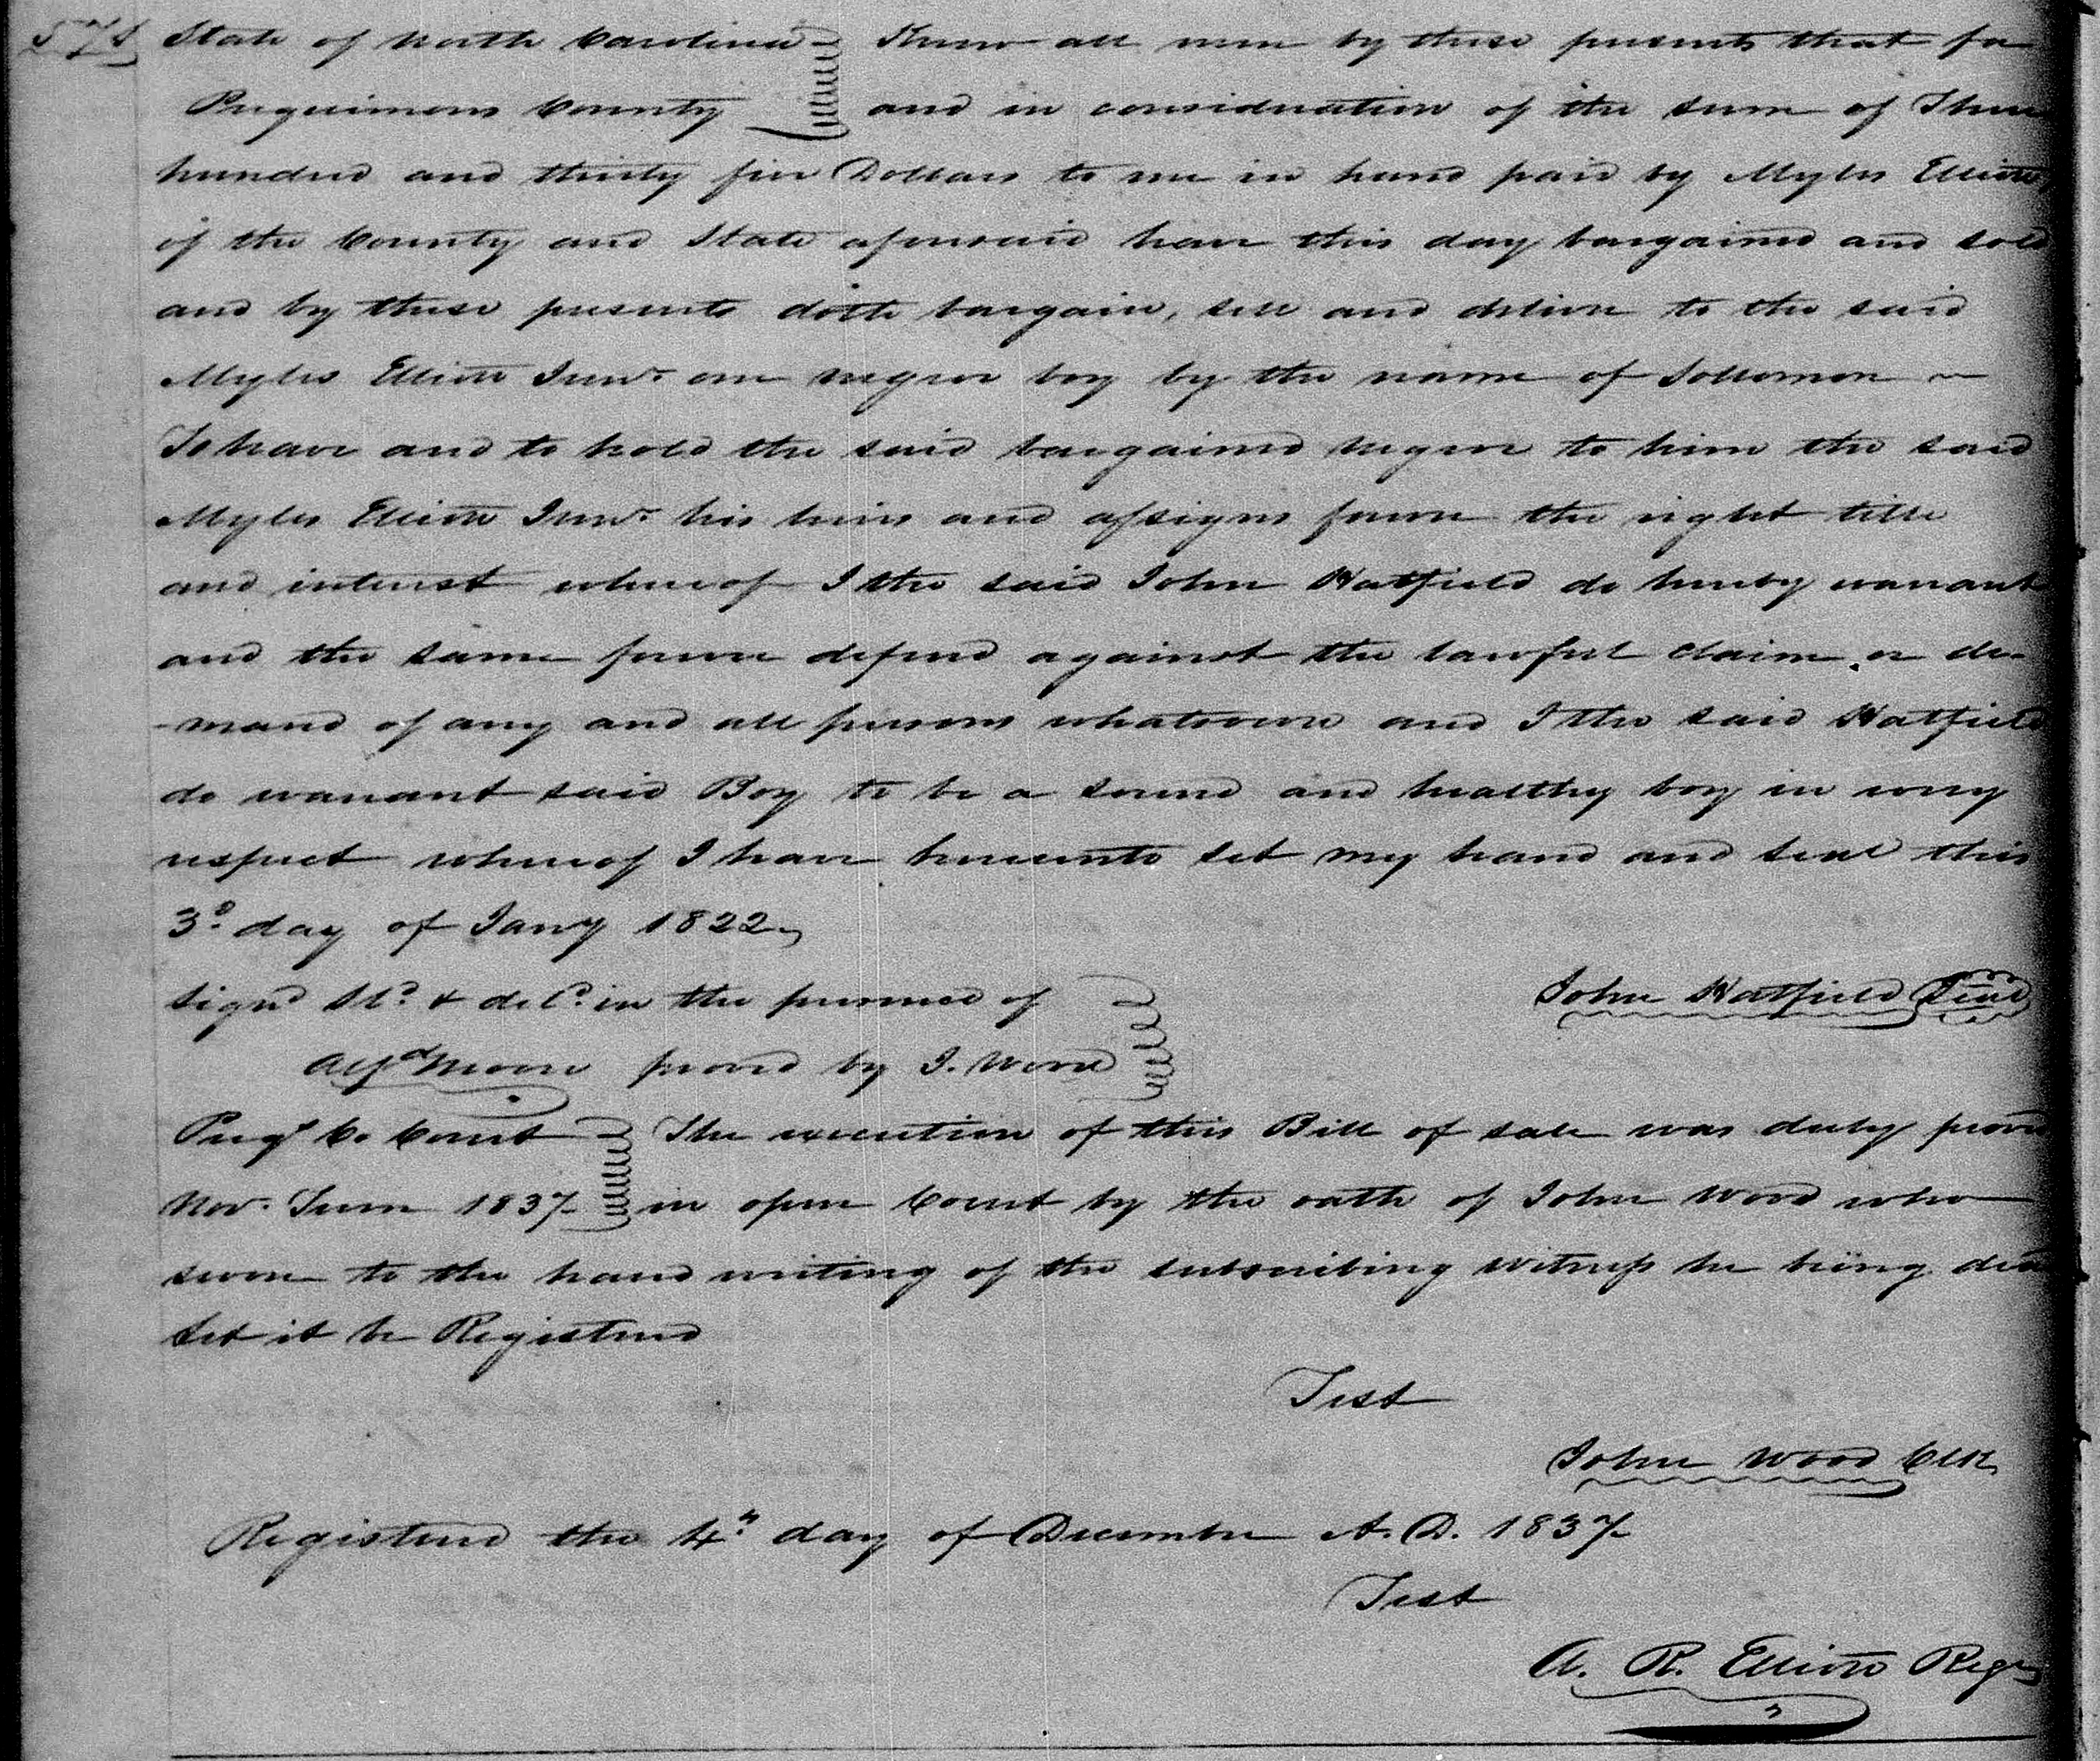 State of North Carolina Know all men by these presents that fo
Perquimons County and in consideration of the sum of Three
hundred and thirty five Dollars to me in hand paid by Myles Elliott
of the County and State aforesaid have this day bargained and sold
and by these presents doth bargain, sell and deliver to the said
Myles Elliott Junr. one negroe boy by the name of Sollomon ~
To have and to hold the said bargained negroe to him the said
Myles Elliott Junr. his heirs and assigns forever the right title
and interest whereof I the said John Hatfield do hereby warrant
and the same forever defend against the lawful claim or de-
-mand of any and all persons whatsoever and I the said Hatfield
do warrant said Boy to be a sound and healthy boy in every
respect whereof I have hereunto set my hand and seal this
3d. day of Jany 1822
John Hatfield Seal
signd Sld. & deld. in the presence of
Alfd Moore proved by J. Wood
Perqs Co Court The execution of this Bill of sale was duly proved
Nov. Term 1837 in open Court by the oath of John Wood who
swore to the hand writing of the subscribing witness he being dead
Let it be Registered
Test
John Wood Clk
Registered the 4th day of December A. D. 1837
Test
A. R. Elliott Regr